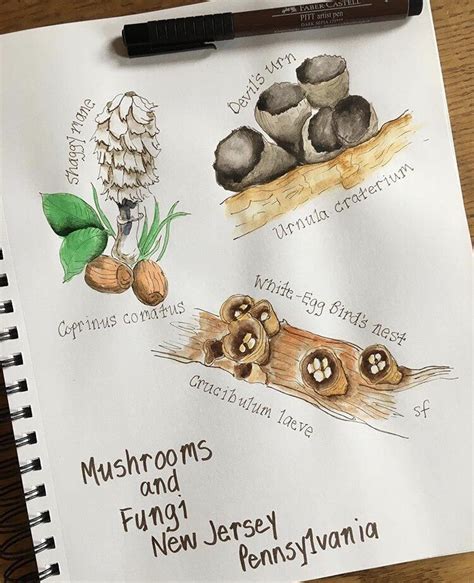 FABER-CASTELL
PITT artist pen
DARK SEPIA
Shaggy mane
Devil's urn
Urnula craterium
Coprinus comatus
White-Egg Bird's nest
Crucibulum laeve
sf
Mushrooms
and
Fungi
New Jersey
Pennsylvania